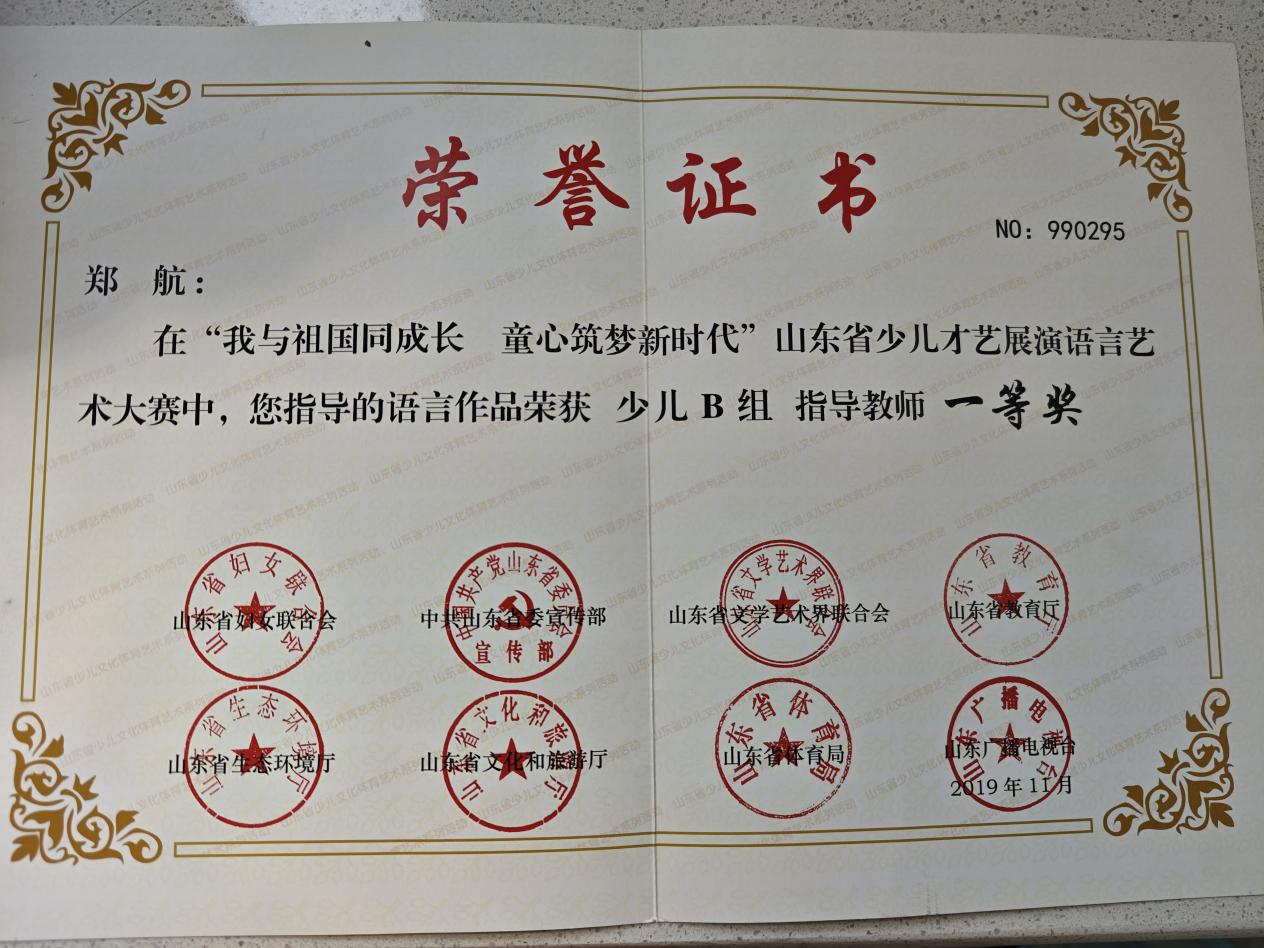 荣誉证书
NO：990295
郑 航：
在“我与祖国同成长 童心筑梦新时代”山东省少儿才艺展演语言艺
术大赛中，您指导的语言作品荣获 少儿 B 组 指导教师 一等奖
山东省妇女联合会 中共山东省委宣传部 山东省文学艺术界联合会 山东省教育厅
山东省妇女联合会
中国共产党山东省委员会
宣传部
山东省文学艺术界联合会
山东省教育厅
山东省生态环境厅 山东省文化和旅游厅 山东省体育局 山东广播电视台
2019 年 11 月
山东省生态环境厅
山东省文化和旅游厅
山东省体育局
山东广播电视台
山东省少儿文化体育艺术系列活动